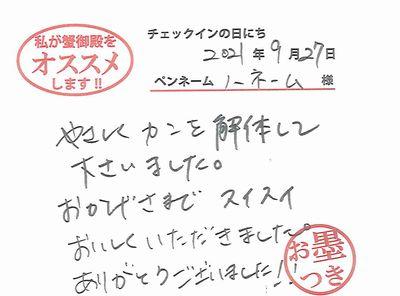 私が蟹御殿を
オススメ
します!!
チェックインの日にち
2021年9月27日
ペンネーム ノーネーム 様
やさしく カニを 解体して
下さいました。
おかげさまで スイスイ
おいしくいただきました。
ありがとうございました!!
お墨
つき